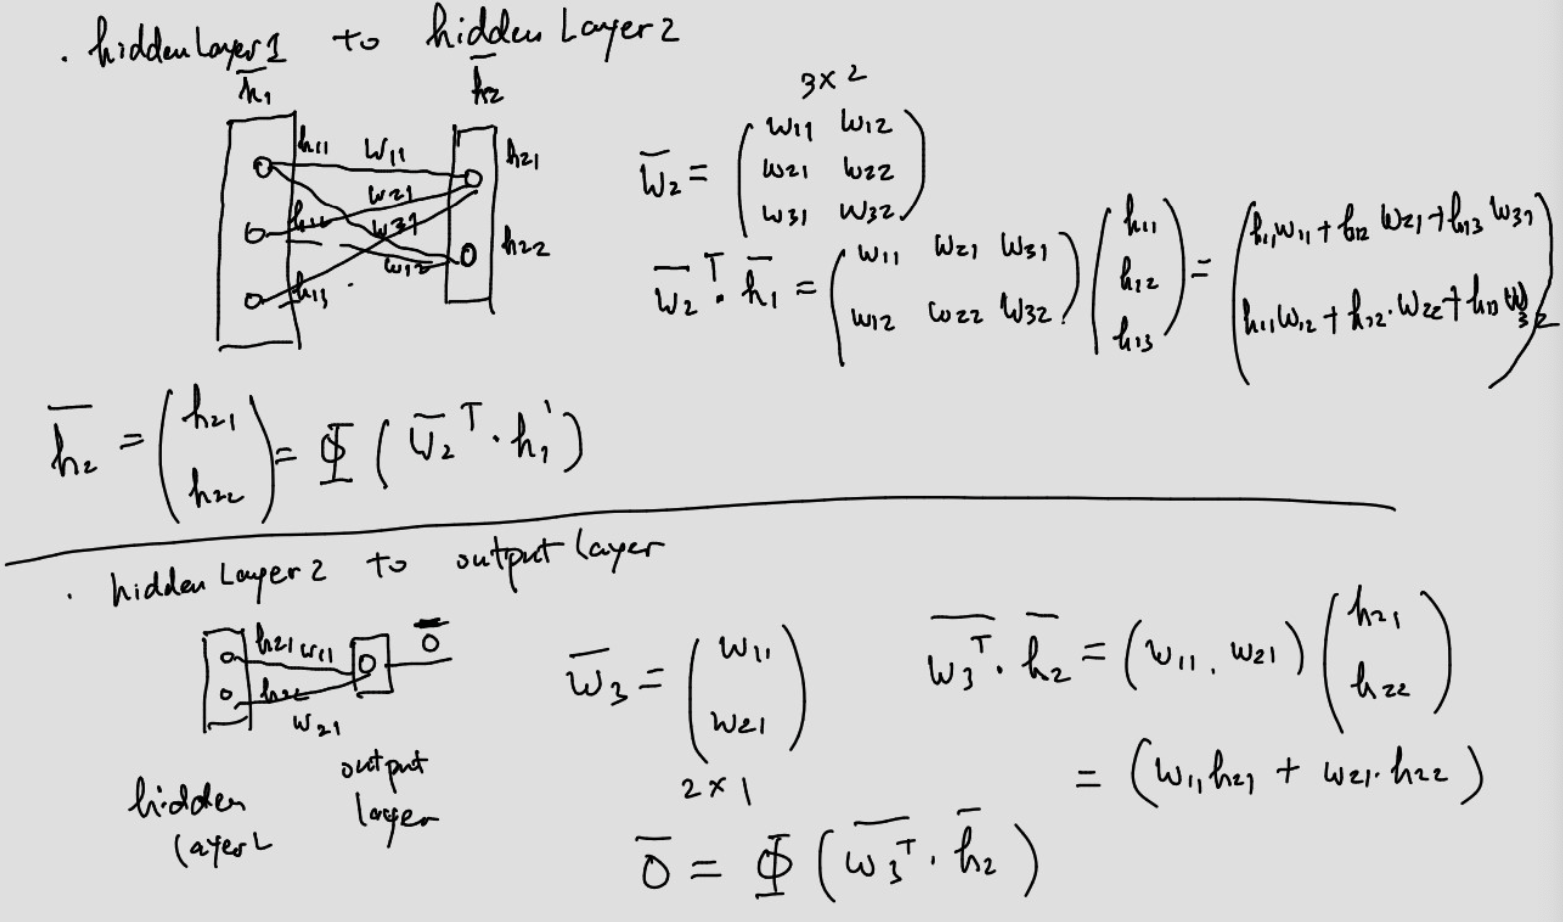 . hidden Layer 1 to hidden Layer 2
h̄₁ h̄₂
h11 W11 h21
W21
h11 W31 h22
W12
h13
3×2
W̄₂ = ( W11 W12
W21 W22
W31 W32 )
W̄₂ᵀ · h̄₁ = ( W11 W21 W31
W12 W22 W32 ) ( h11
h12
h13 ) = ( h11W11 + h12 W21 + h13 W31
h11W12 + h12·W22 + h13 W32 )
h̄₂ = ( h21
h22 ) = Φ ( W̄₂ᵀ · h₁' )
. hidden Layer 2 to output layer
h21 W11 Ō
h22
W21
hidden output
layer 2 layer
W̄₃ = ( W11
W21 )
2×1
W̄₃ᵀ · h̄₂ = ( W11, W21 ) ( h21
h22 )
= ( W11 h21 + W21· h22 )
Ō = Φ ( W̄₃ᵀ · h̄₂ )